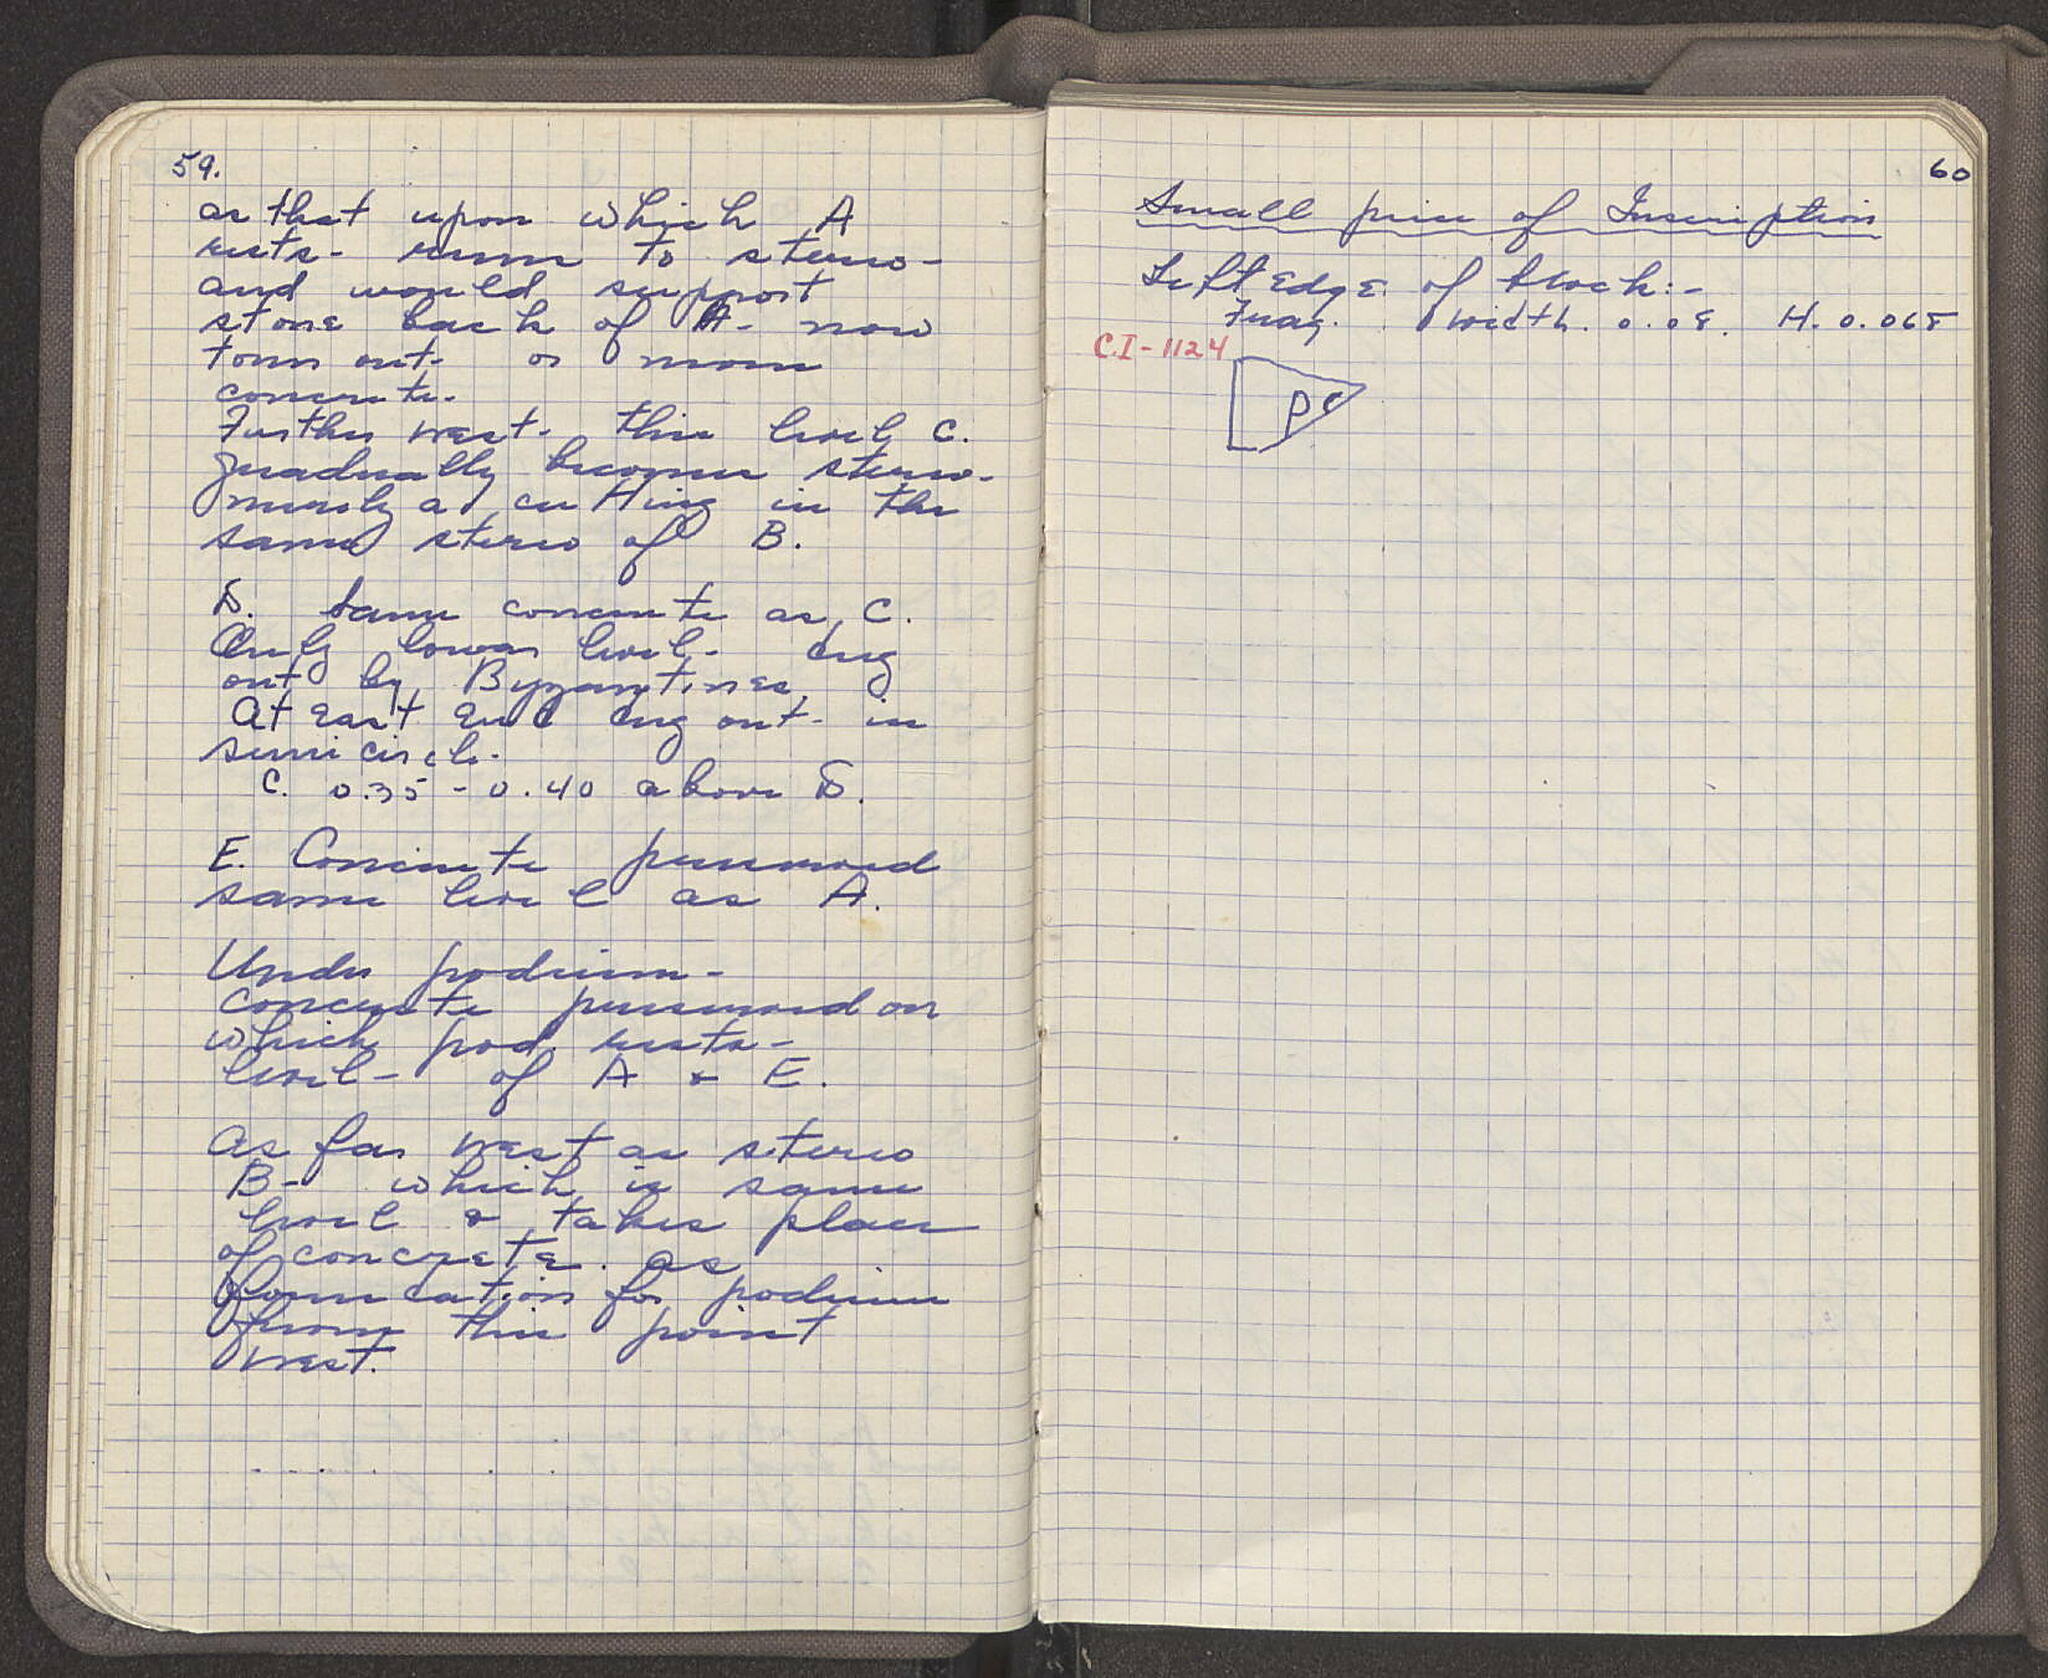 59.
as that upon which A
rests - runs to stereo -
and would support
stone back of A - now
torn out - or more
concrete.
Further west - this level C.
gradually becomes stereo -
merely a cutting in the
same stereo of B.
D. Same concrete as C.
Only lower level - dug
out by Byzantines.
At east end dug out - in
semicircle.
C. 0.35 - 0.40 above D.
E. Concrete preserved
same level as A.
Under podium -
concrete preserved on
which pod. rests -
level - of A & E.
As far west as stereo
B - which is same
level & takes place
of concrete as
foundation for podium
from this point
west.
60
Small piece of Inscription
Left Edge of block:-
Frag. width. 0.08. H. 0.068
C.I - 1124
P